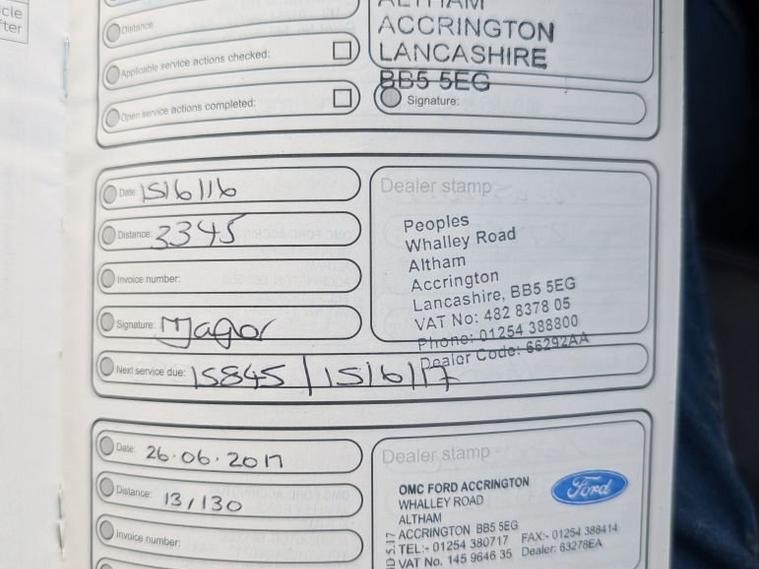 cle
fter
Distance
Applicable service actions checked:
Open service actions completed:
ALTHAM
ACCRINGTON
LANCASHIRE
BB5 5EG
Signature:
Date: 15/6/16
Distance: 3345
Invoice number:
Signature:
Next service due: 15845 / 15/6/17
Dealer stamp
Peoples
Whalley Road
Altham
Accrington
Lancashire, BB5 5EG
VAT No: 482 8378 05
Phone: 01254 388800
Dealer Code: 66292AA
Date: 26.06.2017
Distance: 13/130
Invoice number:
Dealer stamp
OMC FORD ACCRINGTON
WHALLEY ROAD
ALTHAM
ACCRINGTON BB5 5EG
TEL:- 01254 380717 FAX:- 01254 388414
VAT No. 145 9646 35 Dealer: 63278EA
Ford